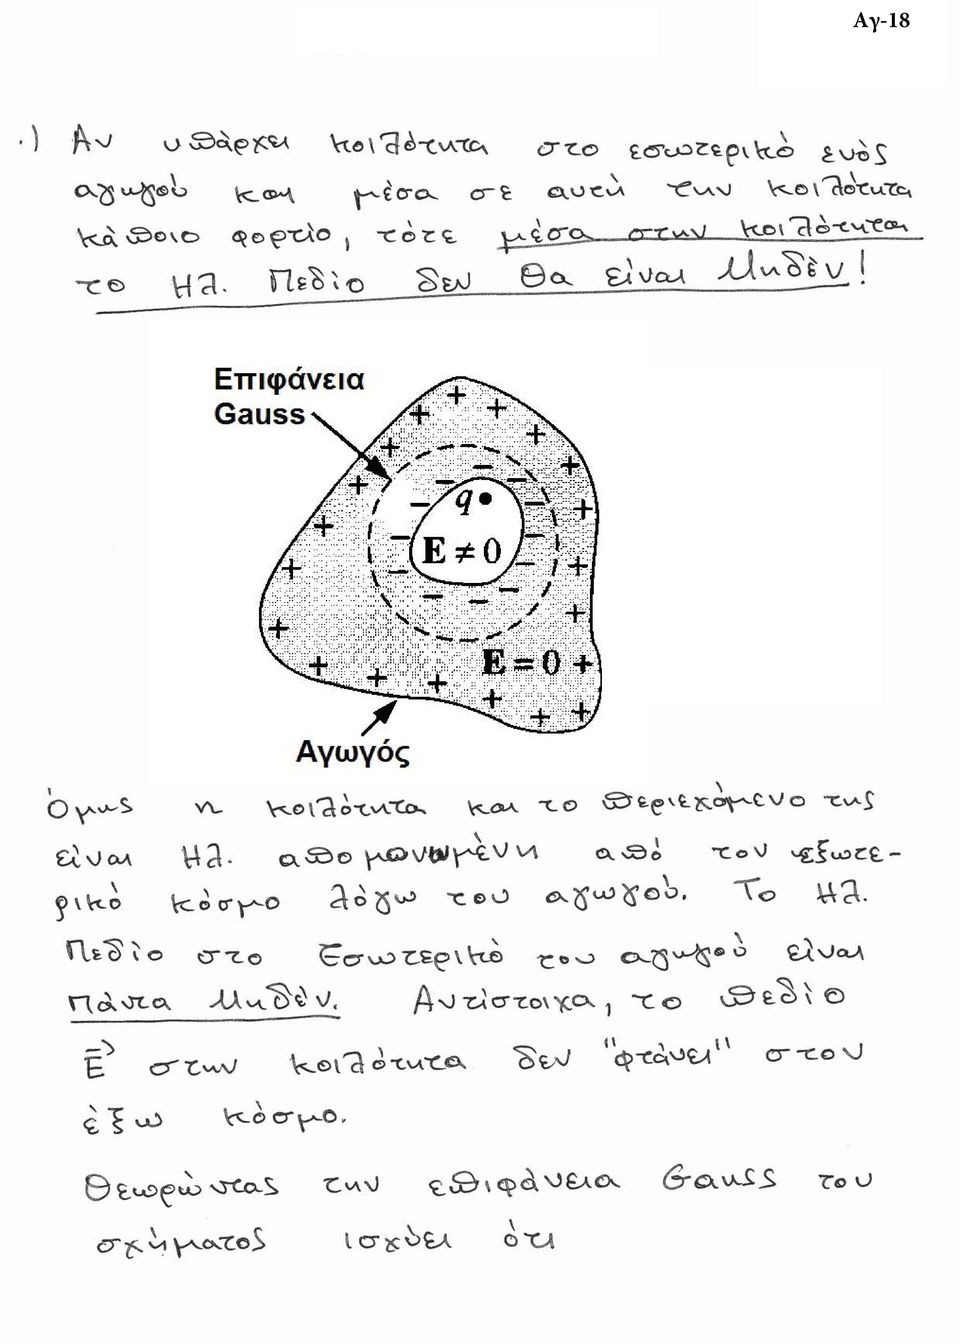 Αγ-18
.) Αν υπάρχει κοιλότητα στο εσωτερικό ενός
αγωγού και μέσα σε αυτή την κοιλότητα
κάποιο φορτίο, τότε μέσα στην κοιλότητα
το Ηλ. Πεδίο δεν θα είναι Μηδέν!
Επιφάνεια
Gauss
+ + + + + + + + + + + + + + + + + + + + + + +
− − − − − − − − − − − − −
q •
E ≠ 0
E = 0
Αγωγός
Όμως η κοιλότητα και το περιεχόμενο της
είναι Ηλ. απομονωμένη από τον εξωτε-
ρικό κόσμο λόγω του αγωγού. Το Ηλ.
Πεδίο στο Εσωτερικό του αγωγού είναι
πάντα Μηδέν. Αντίστοιχα, το πεδίο
E⃗ στην κοιλότητα δεν "φτάνει" στον
έξω κόσμο.
Θεωρώντας την επιφάνεια Gauss του
σχήματος ισχύει ότι